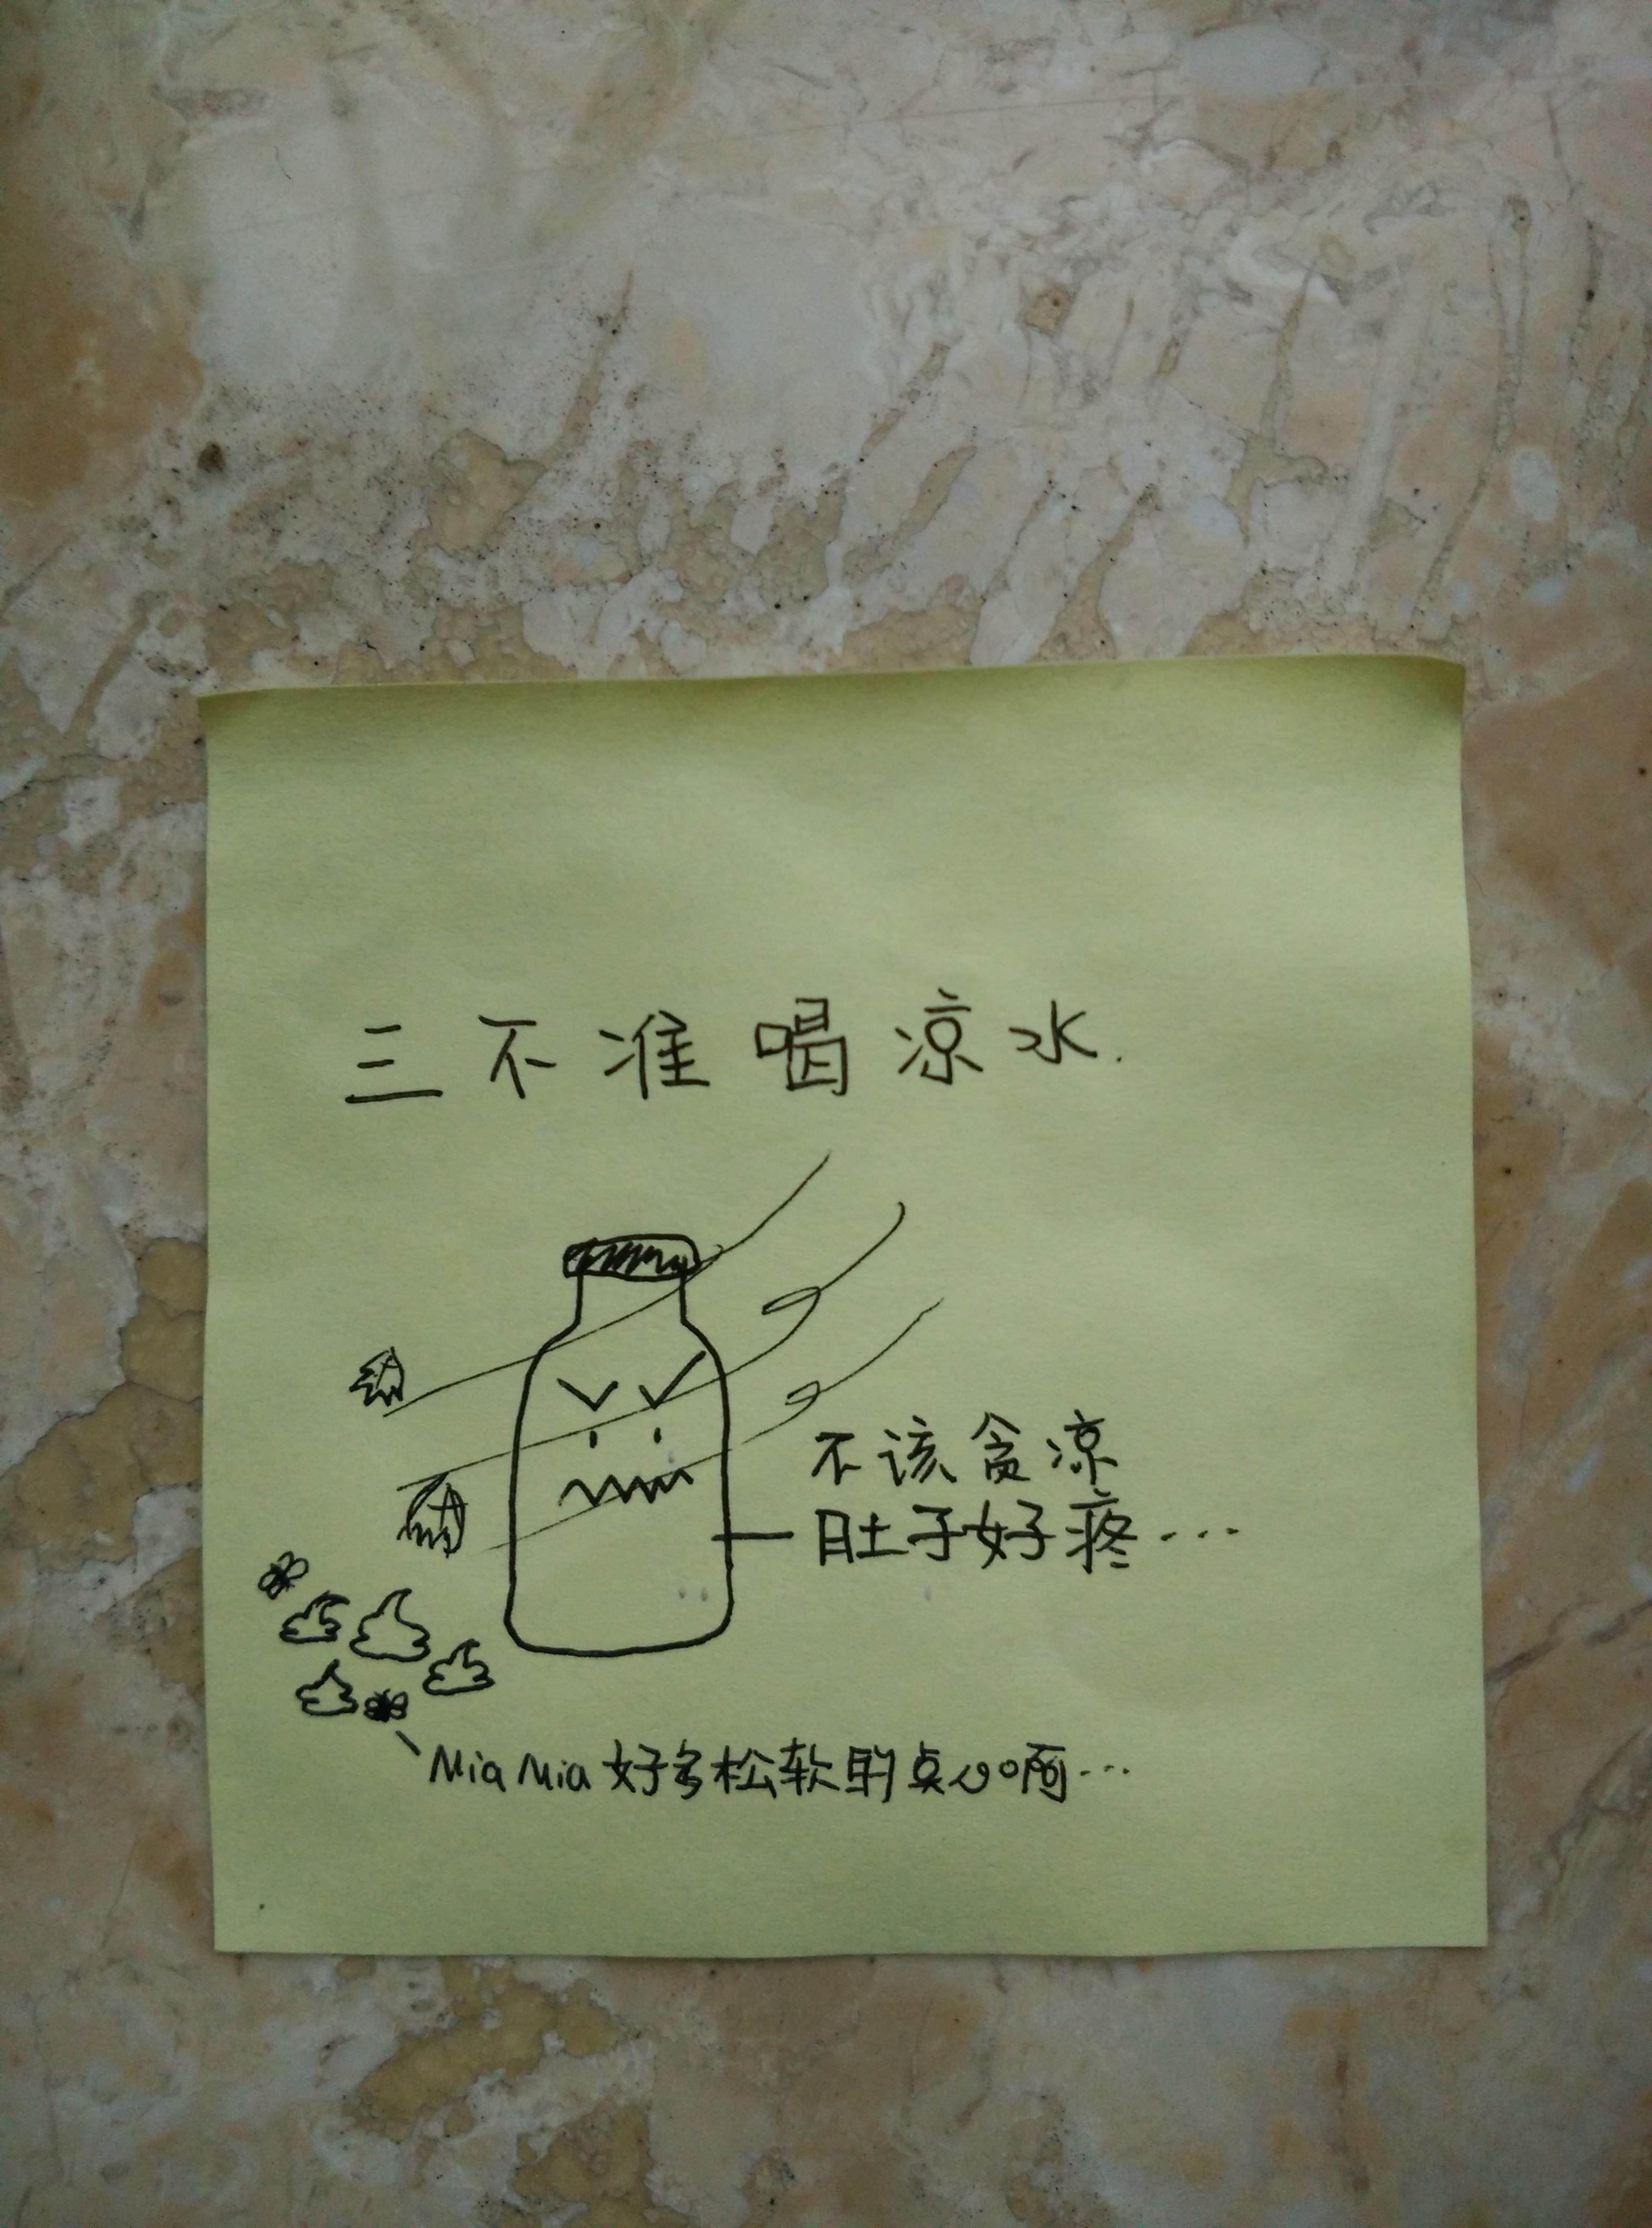 三不准喝凉水.
不该贪凉
肚子好疼...
MiaMia好多松软的点心啊...